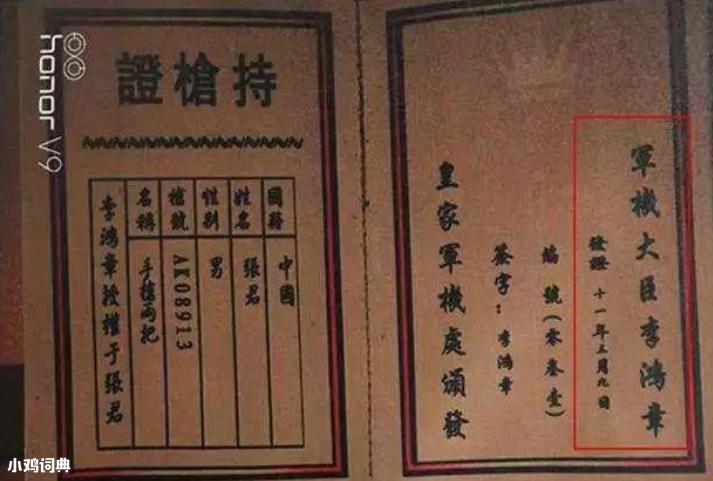 軍機大臣李鴻章
發證 十一年三月九日
編號(零叁壹)
簽字:李鴻章
皇家軍機處頒發
持槍證
國籍 中國
姓名 張君
性别 男
槍號 AK08913
名稱 手槍兩把
李鴻章授權于張君
honor V9
小鸡词典